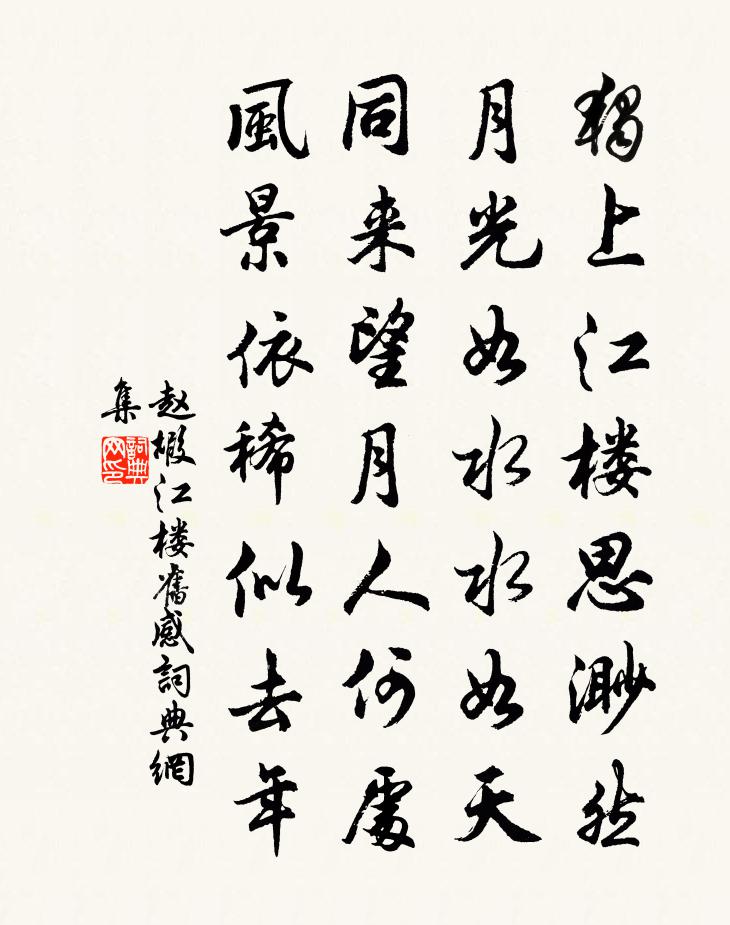 獨上江楼思渺然
月光如水水如天
同来望月人何處
風景依稀似去年
赵嘏江楼舊感詞典網
集
詞典网印